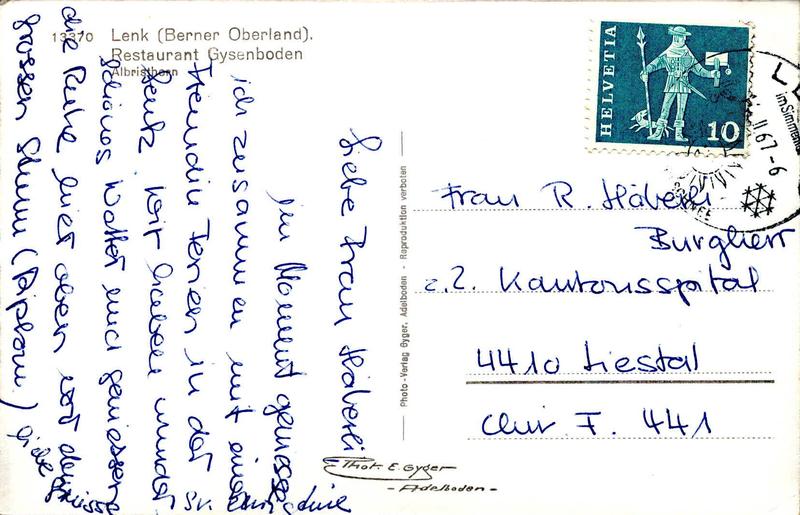 13370 Lenk (Berner Oberland).
Restaurant Gysenboden
Albristhorn
Liebe Frau Häberli
Im Moment geniesse
ich zusammen mit einer
Freundin Ferien in der
Lenk. Wir haben wunder
schönes Wetter und geniessen
die Ruhe hier oben vor dem
grossen Sturm (Diplom) liebe Grüsse
Sr.
Photo-Verlag Gyger, Adelboden - Reproduktion verboten
HELVETIA
10
LE
im Simmental
II.67-6
Frau R. Häberli
Burgherr
z.Z. Kantonsspital
4410 Liestal
Chir F. 441
Phot. E. Gyger
- Adelboden -